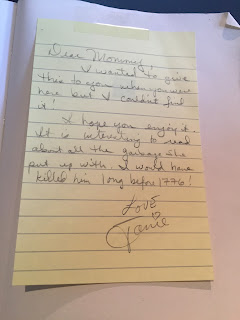 Dear Mommy,
I wanted to give
this to you when you were
here but I couldn't find
it!
I hope you enjoy it.
It is interesting to read
about all the garbage she
put up with. I would have
killed him long before 1776!
Love
Janie